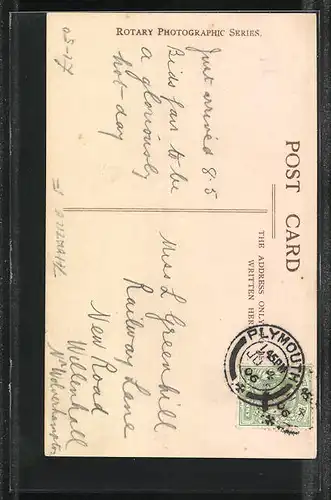 ROTARY PHOTOGRAPHIC SERIES.
POST CARD
THE ADDRESS ONLY
WRITTEN HER
Just arrived 8.5
Bids fair to be
a gloriously
hot-day
Miss L Greenhill
Railway Lane
New Road
Willenhall
Nr Wolverhampton
PLYMOUTH
06